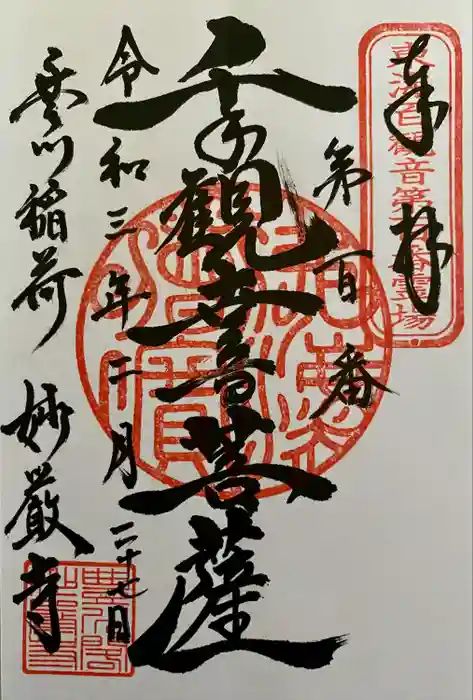 奉拝
東海百観音第百番霊場
第百番
千手観世音菩薩
令和三年二月二十七日
豊川稲荷
妙厳寺